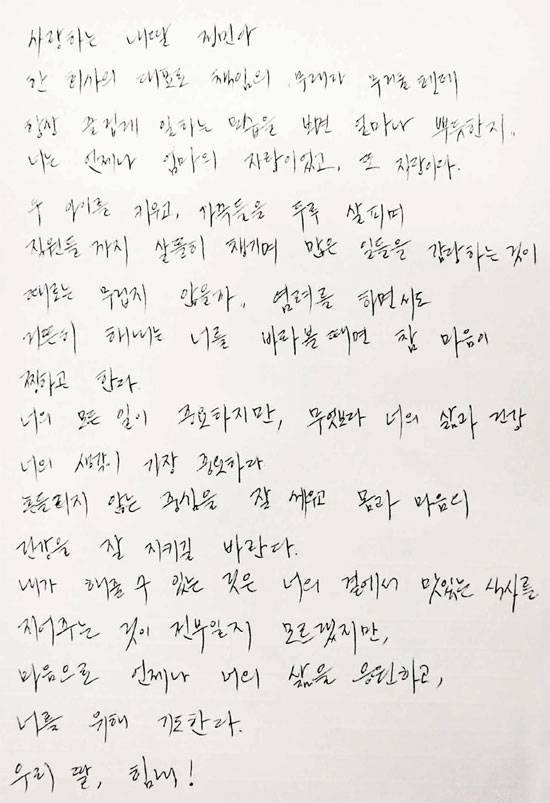 사랑하는 내딸 정민아
한 회사의 대표로 책임의 무게가 무거울텐데
항상 즐겁게 일하는 모습을 보면 얼마나 뿌듯한지..
너는 언제나 엄마의 자랑이었고, 또 자랑이야.
두 아이를 키우고, 가족들을 두루 살피며
직원들 까지 살뜰히 챙기며 많은 일들을 감당하는 것이
때로는 무겁지 않을까.. 염려를 하면서도
거뜬히 해내는 너를 바라볼 때면 참 마음이
찡하고 한다.
너의 모든 일이 중요하지만, 무엇보다 너의 삶과 건강
너의 생각이 가장 중요하다
흔들리지 않는 중심을 잘 세우고 몸과 마음의
건강을 잘 지키길 바란다.
내가 해줄 수 있는 것은 너의 곁에서 맛있는 식사를
지어주는 것이 전부일지 모르겠지만,
마음으로 언제나 너의 삶을 응원하고,
너를 위해 기도한다.
우리 딸, 힘내!